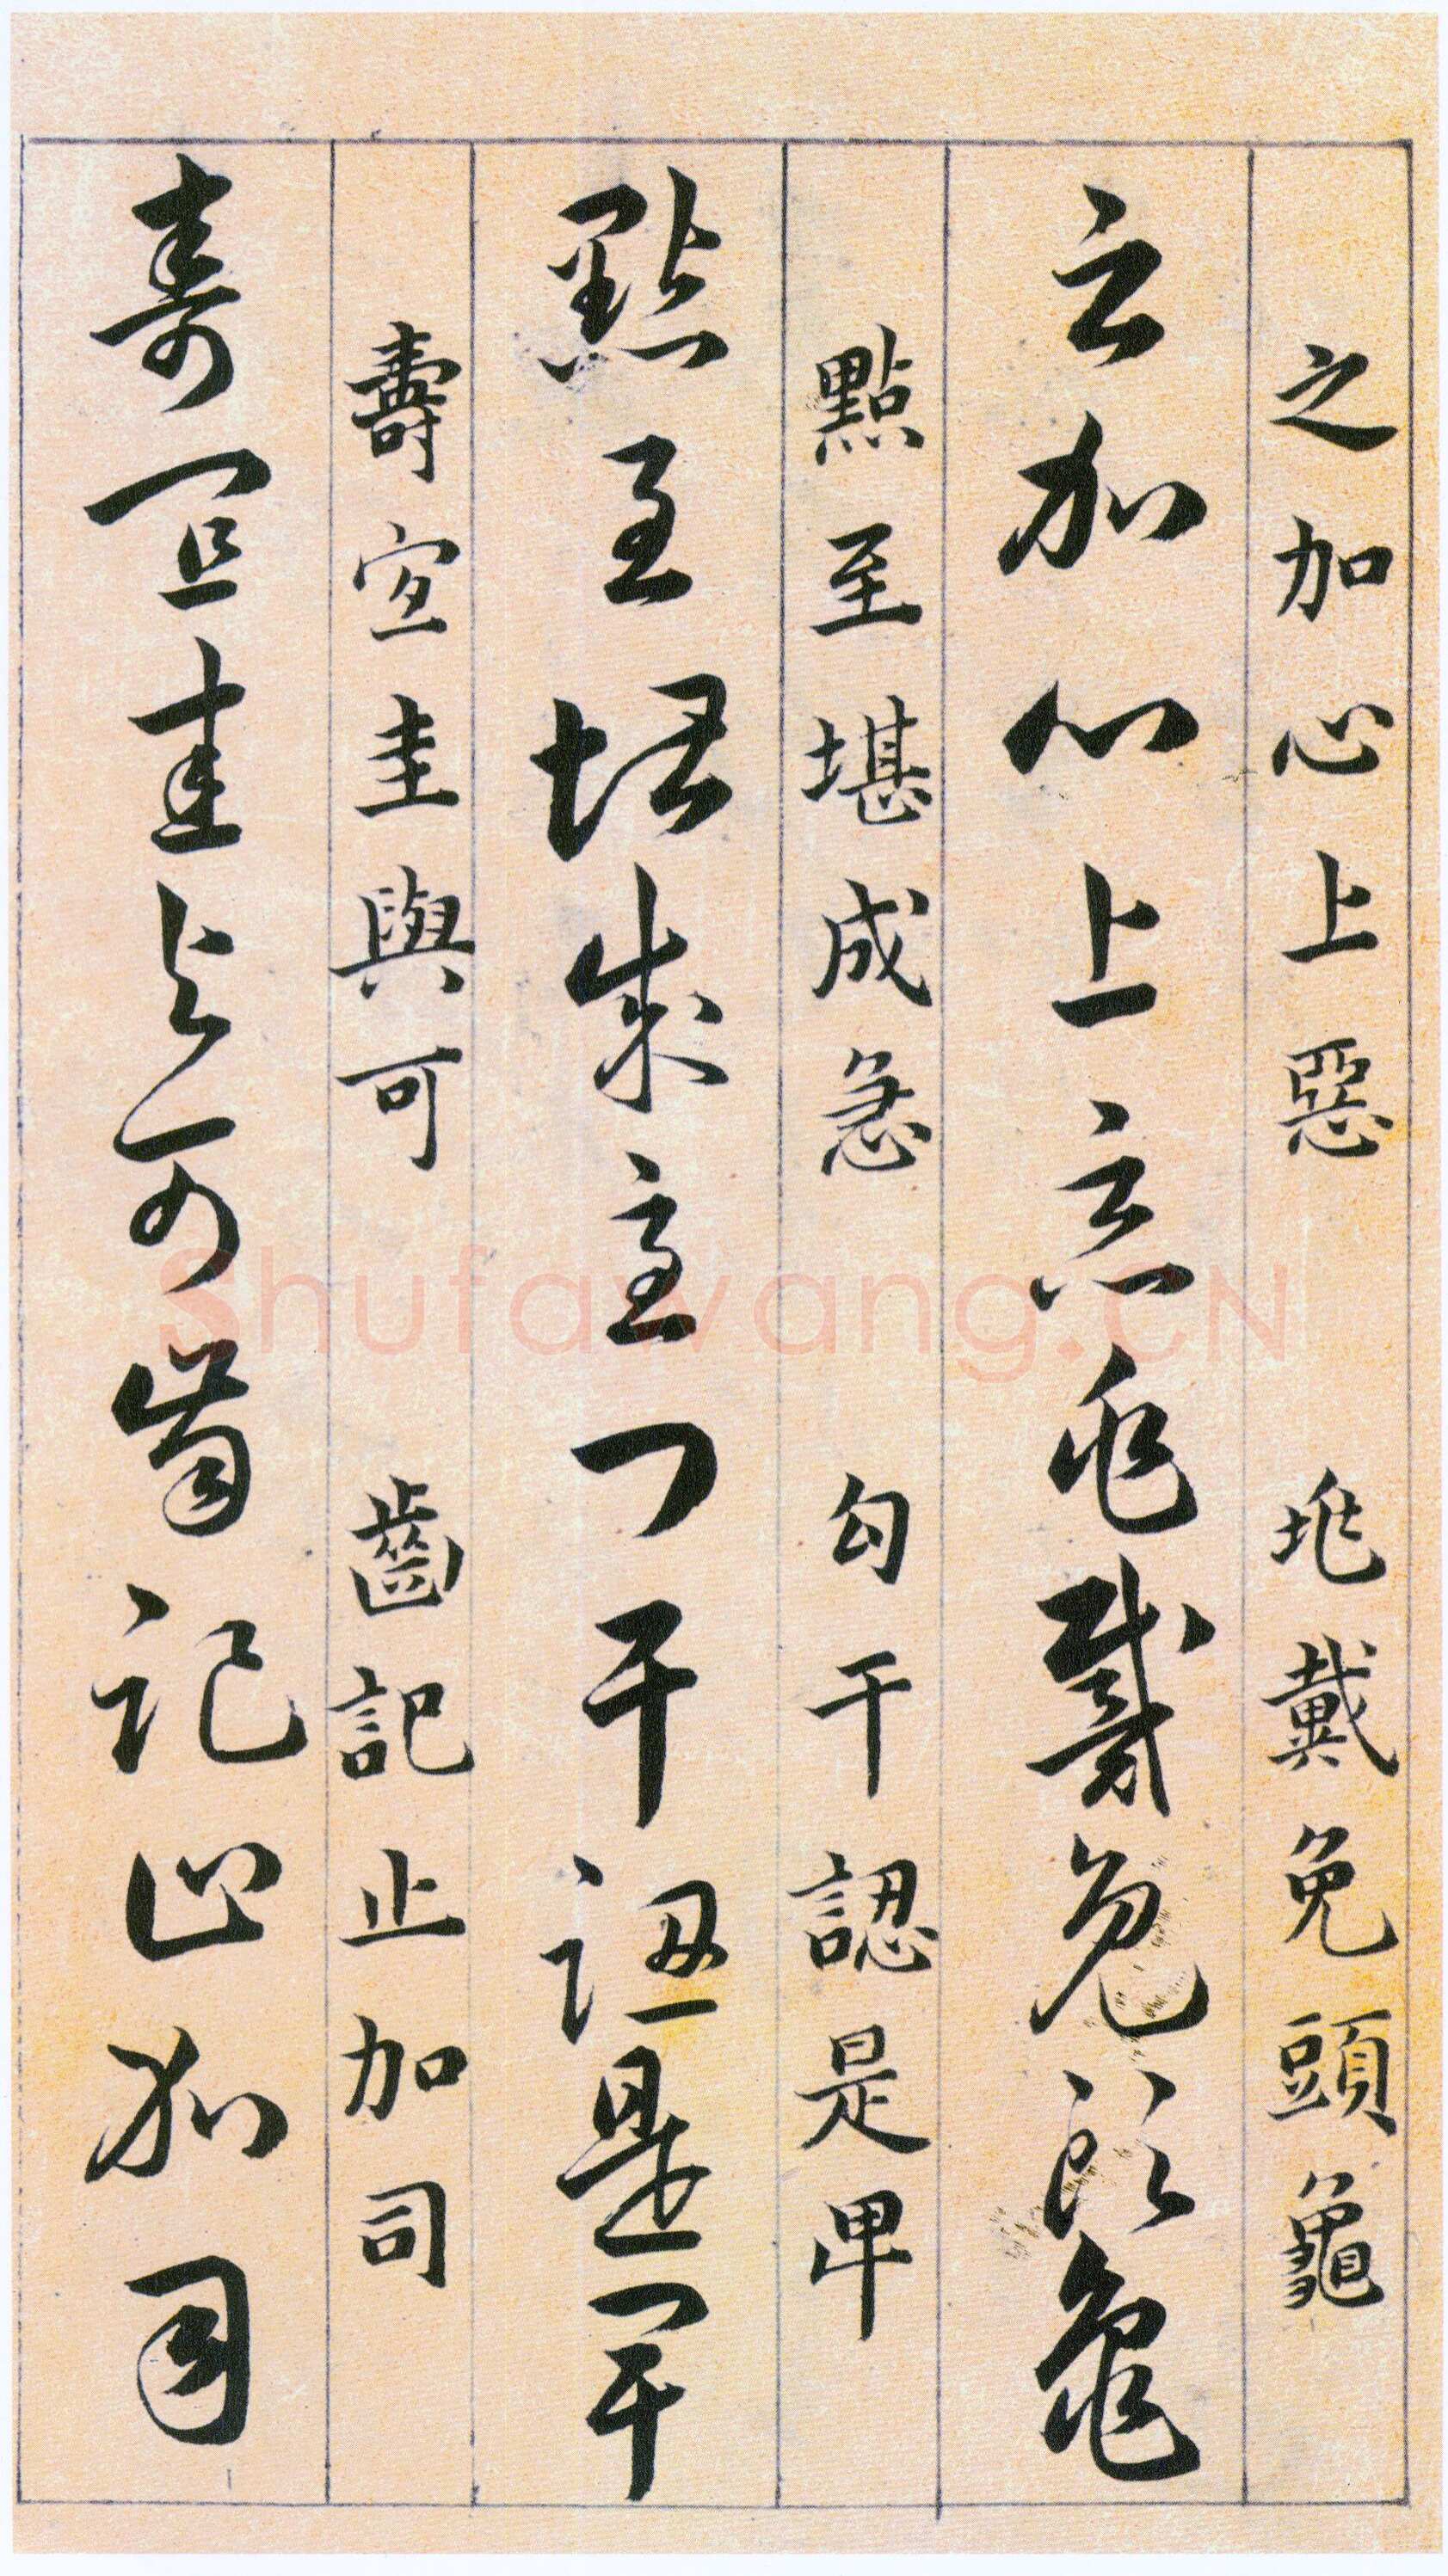 之加心上惡 兆戴免頭龜
之加心上惡兆戴免頭龜
點至堪成急 勾干認是卑
點至堪成急勾干認是卑
壽宜圭與可 齒記止加司
壽宜圭與可齒記止加司
Shufawang.CN